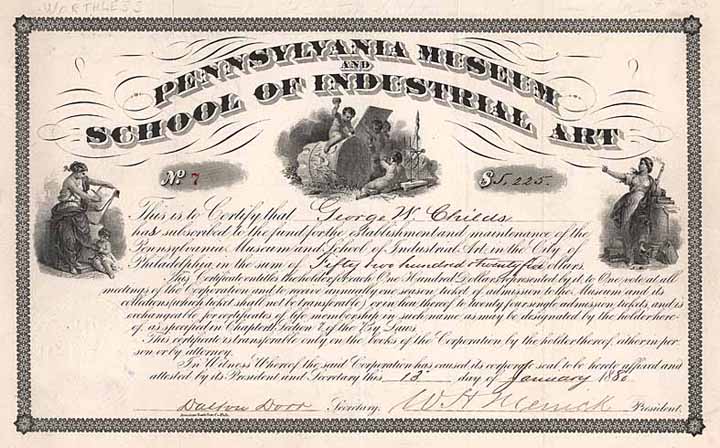 WORTHLESS
PENNSYLVANIA MUSEUM
AND
SCHOOL OF INDUSTRIAL ART
No. 7
$5,225.
This is to Certify that George W. Childs
has subscribed to the fund for the establishment and maintenance of the
Pennsylvania Museum and School of Industrial Art, in the City of
Philadelphia, in the sum of Fifty two hundred & twenty five dollars.
This Certificate entitles the holder for each One Hundred Dollars represented by it, to One vote at all
meetings of the Corporation, and to receive annually one season ticket of admission to the Museum and its
collections, (which ticket shall not be transferable) or in lieu thereof to twenty four single admission tickets, and is
exchangeable for certificates of life membership in such name as may be designated by the holder here-
of, as specified in Chapter 1, Section 7, of the By Laws.
This certificate is transferable only on the books of the Corporation by the holder thereof, either in per-
son or by attorney.
In Witness Whereof the said Corporation has caused its corporate seal to be hereto affixed and
attested by its President and Secretary this 13 day of January 1880.
Dalton Dorr Secretary. W. H. Merrick President.